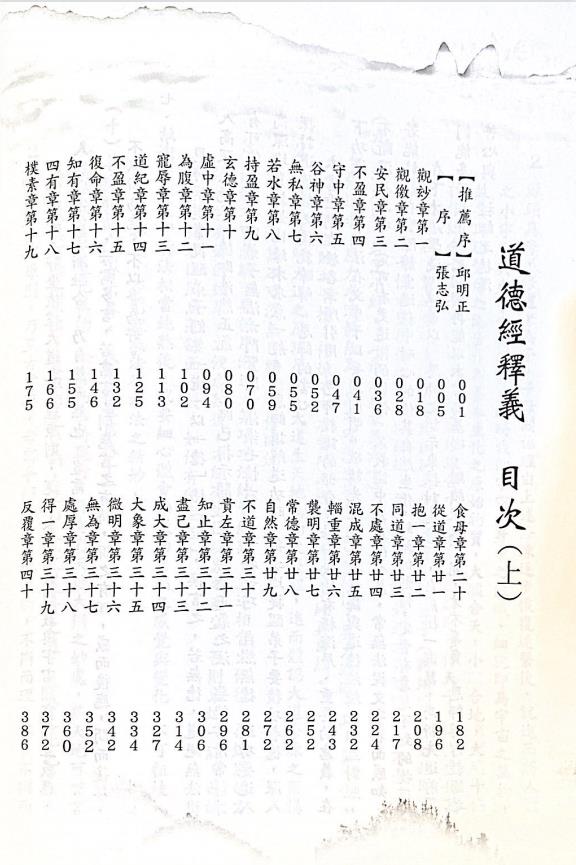 道德經釋義　目次（上）
【推薦序】邱明正 001
【序】張志弘 005
觀妙章第一 018
觀徼章第二 028
安民章第三 036
不盈章第四 041
守中章第五 047
谷神章第六 052
無私章第七 055
若水章第八 059
持盈章第九 070
玄德章第十 080
虛中章第十一 094
為腹章第十二 102
寵辱章第十三 113
道紀章第十四 125
不盈章第十五 132
復命章第十六 146
知有章第十七 155
四有章第十八 166
樸素章第十九 175
食母章第二十 182
從道章第廿一 196
抱一章第廿二 208
同道章第廿三 217
不處章第廿四 224
混成章第廿五 232
輜重章第廿六 243
襲明章第廿七 252
常德章第廿八 262
自然章第廿九 272
不道章第三十 281
貴左章第三十一 296
知止章第三十二 306
盡己章第三十三 314
成大章第三十四 327
大象章第三十五 334
微明章第三十六 342
無為章第三十七 352
處厚章第三十八 360
得一章第三十九 372
反覆章第四十 386